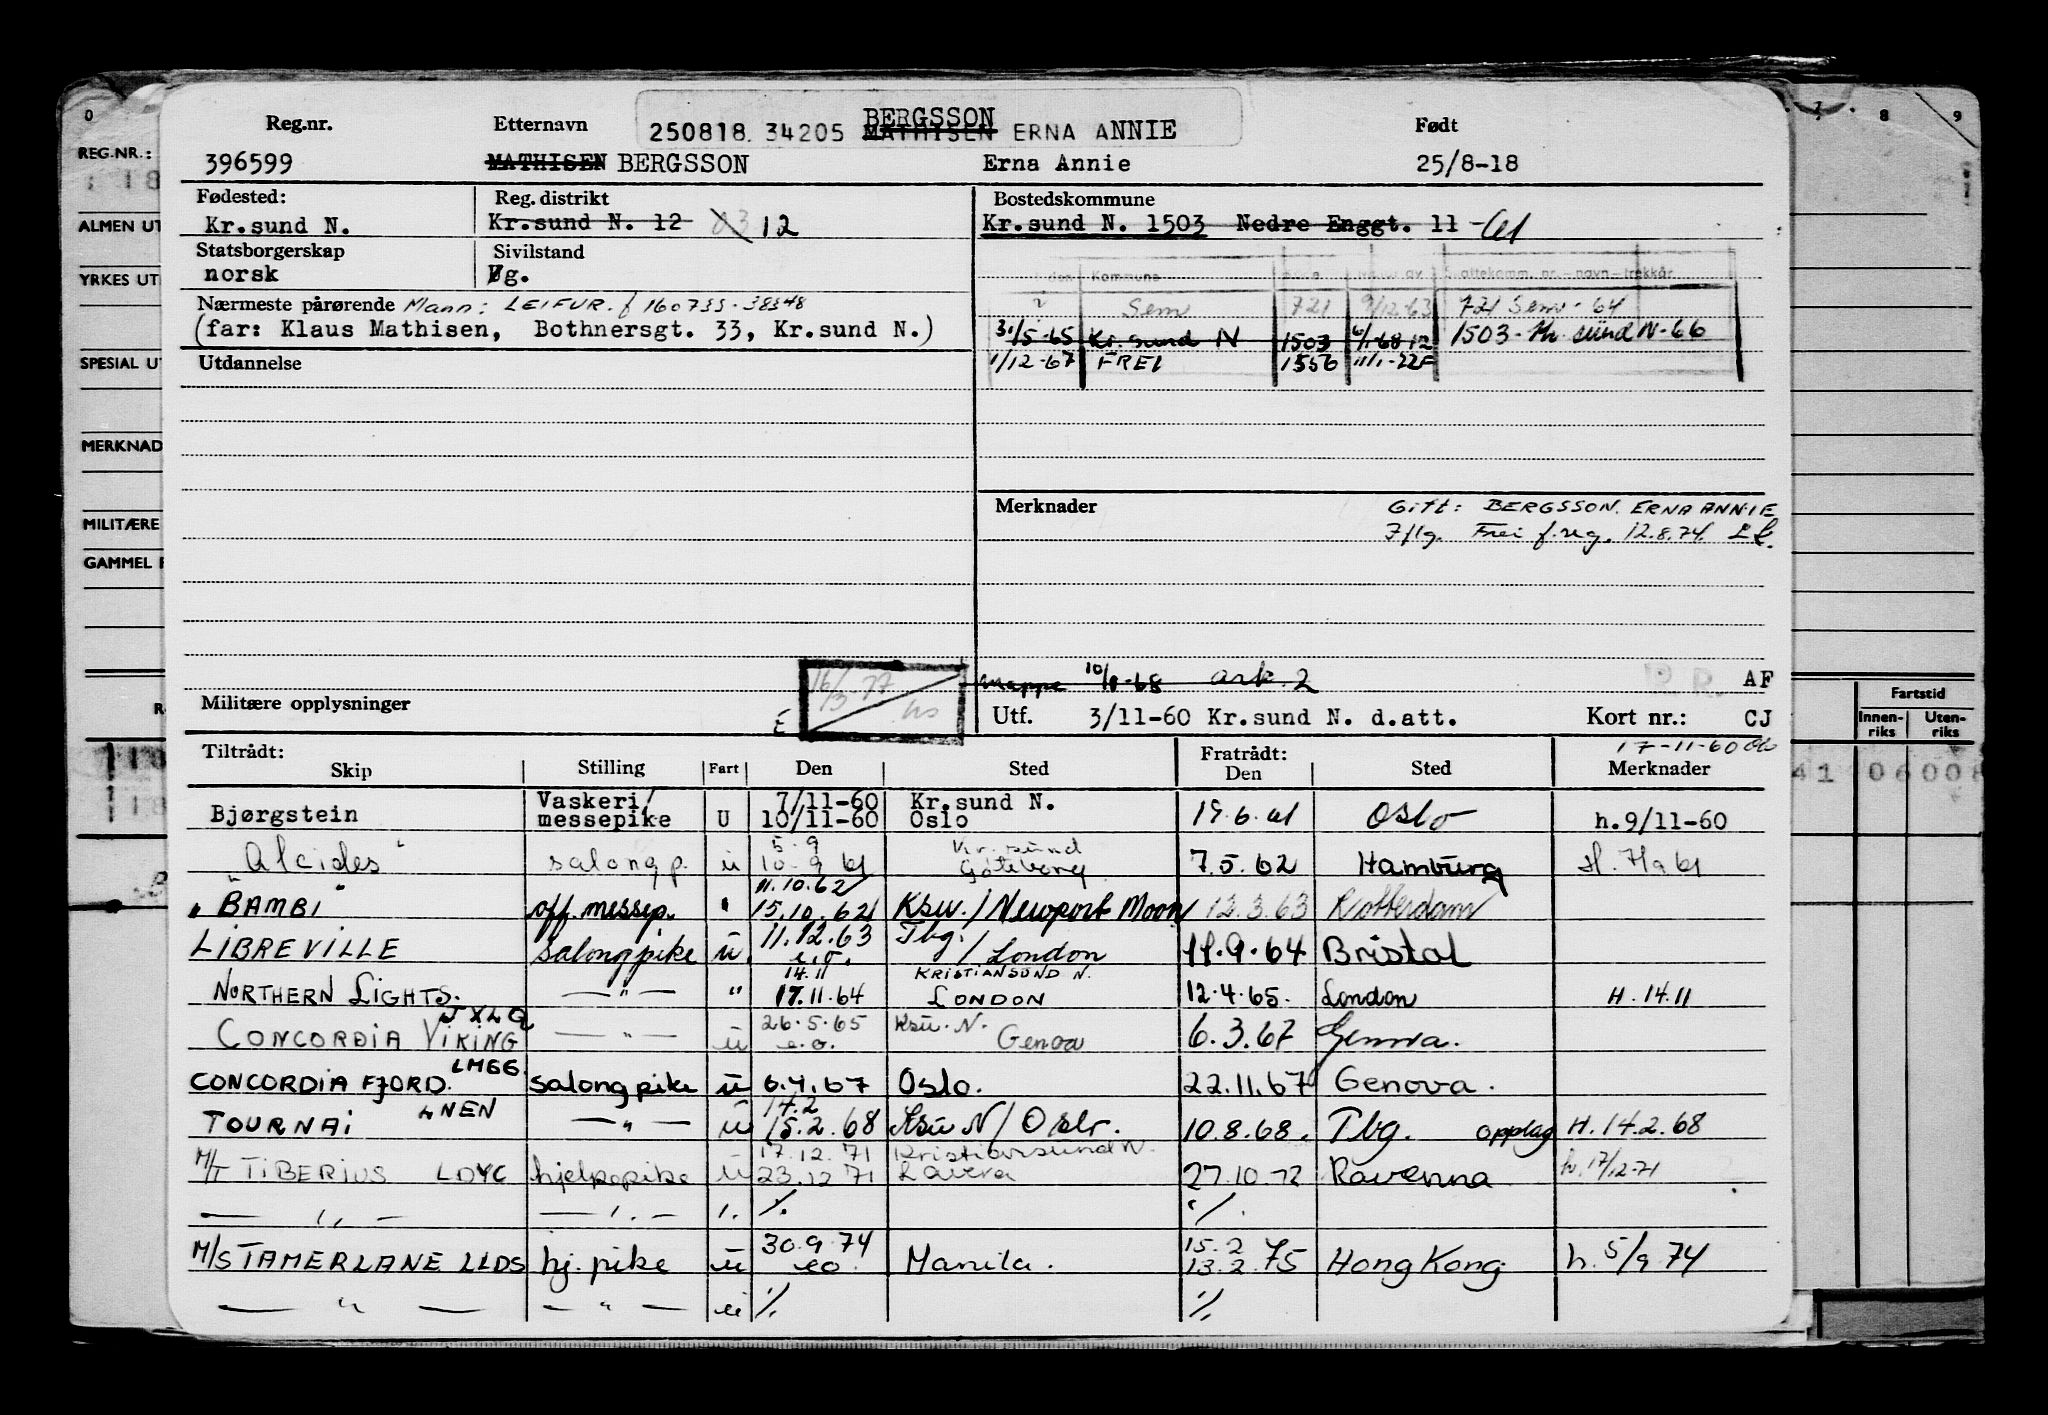 BERGSSON
250818. 34205 MATHISEN ERNA ANNIE
Reg.nr. Etternavn Født
396599 MATHISEN BERGSSON Erna Annie 25/8-18
Fødested: Reg. distrikt Bostedskommune
Kr.sund N. Kr.sund N. 12 12 Kr.sund N. 1503 Nedre Enggt. 11
Statsborgerskap Sivilstand
norsk g.
Kommune
Nærmeste pårørende Mann: LEIFUR. f 160733-38348
Sem 721 9/12-63 721 Sem - 64
(far: Klaus Mathisen, Bothnersgt. 33, Kr.sund N.)
31/5-65 Kr. sund N 1503 6/1-68 12 1503 - Kr sund N-66
Utdannelse
1/12-67 FREI 1556
Merknader Gift: BERGSSON. ERNA ANNIE
Frei f.reg. 12.8.74
Mappe 10/1-68 ark. 2 AF
16/3-77
Militære opplysninger
Utf. 3/11-60 Kr.sund N. d.att. Kort nr.: CJ
17-11-60
Tiltrådt: Fratrådt:
Skip Stilling Fart Den Sted Den Sted Merknader
Bjørgstein Vaskeri/messepike U 7/11-60 10/11-60 Kr.sund N. Oslo 19.6.61 Oslo h.9/11-60
"Alcides" salongp. u 5.9 10.9 61 Kr.sund Göteborg 7.5.62 Hamburg
"BAMBI" off. messep. " 11.10.62 15.10.62 Ksu. / Newport Moon 12.3.63 Rotterdam
LIBREVILLE salongpike u. 11.12.63 e.o. Tbg. / London 11.9.64 Bristol
NORTHERN LIGHTS. — " — " 14.11 17.11.64 KRISTIANSUND N. LONDON 12.4.65. London H. 14.11
JXLQ
CONCORDIA VIKING — " — u 26.5.65 e.o. Ksu. N. Genoa 6.3.67 Genova.
LMGG
CONCORDIA FJORD. salongpike u 6.4.67 Oslo. 22.11.67 Genova.
LNEN
TOURNAI — " — u 14.2 15.2.68 Ksu N / Oslo. 10.8.68. Tbg. opplag H. 14.2.68
M/T TIBERIUS LDYC hjelpepike u 17.12.71 23.12 71 Kristiansund N. Lavera 27.10.72 Ravenna h. 17/12-71
— " — — " — ". ./. ./.
M/S TAMERLANE LLDS hj. pike u 30.9.74 eo. Manila. 15.2 13.2.75 Hong Kong h. 5/9 74
— " — — " — u ./. ./.
0
REG.NR.:
18
ALMEN UT
YRKES UT
SPESIAL UT
MERKNAD
MILITÆRE
GAMMEL
7 8 9
Fartstid
Innenriks Utenriks
41 0600